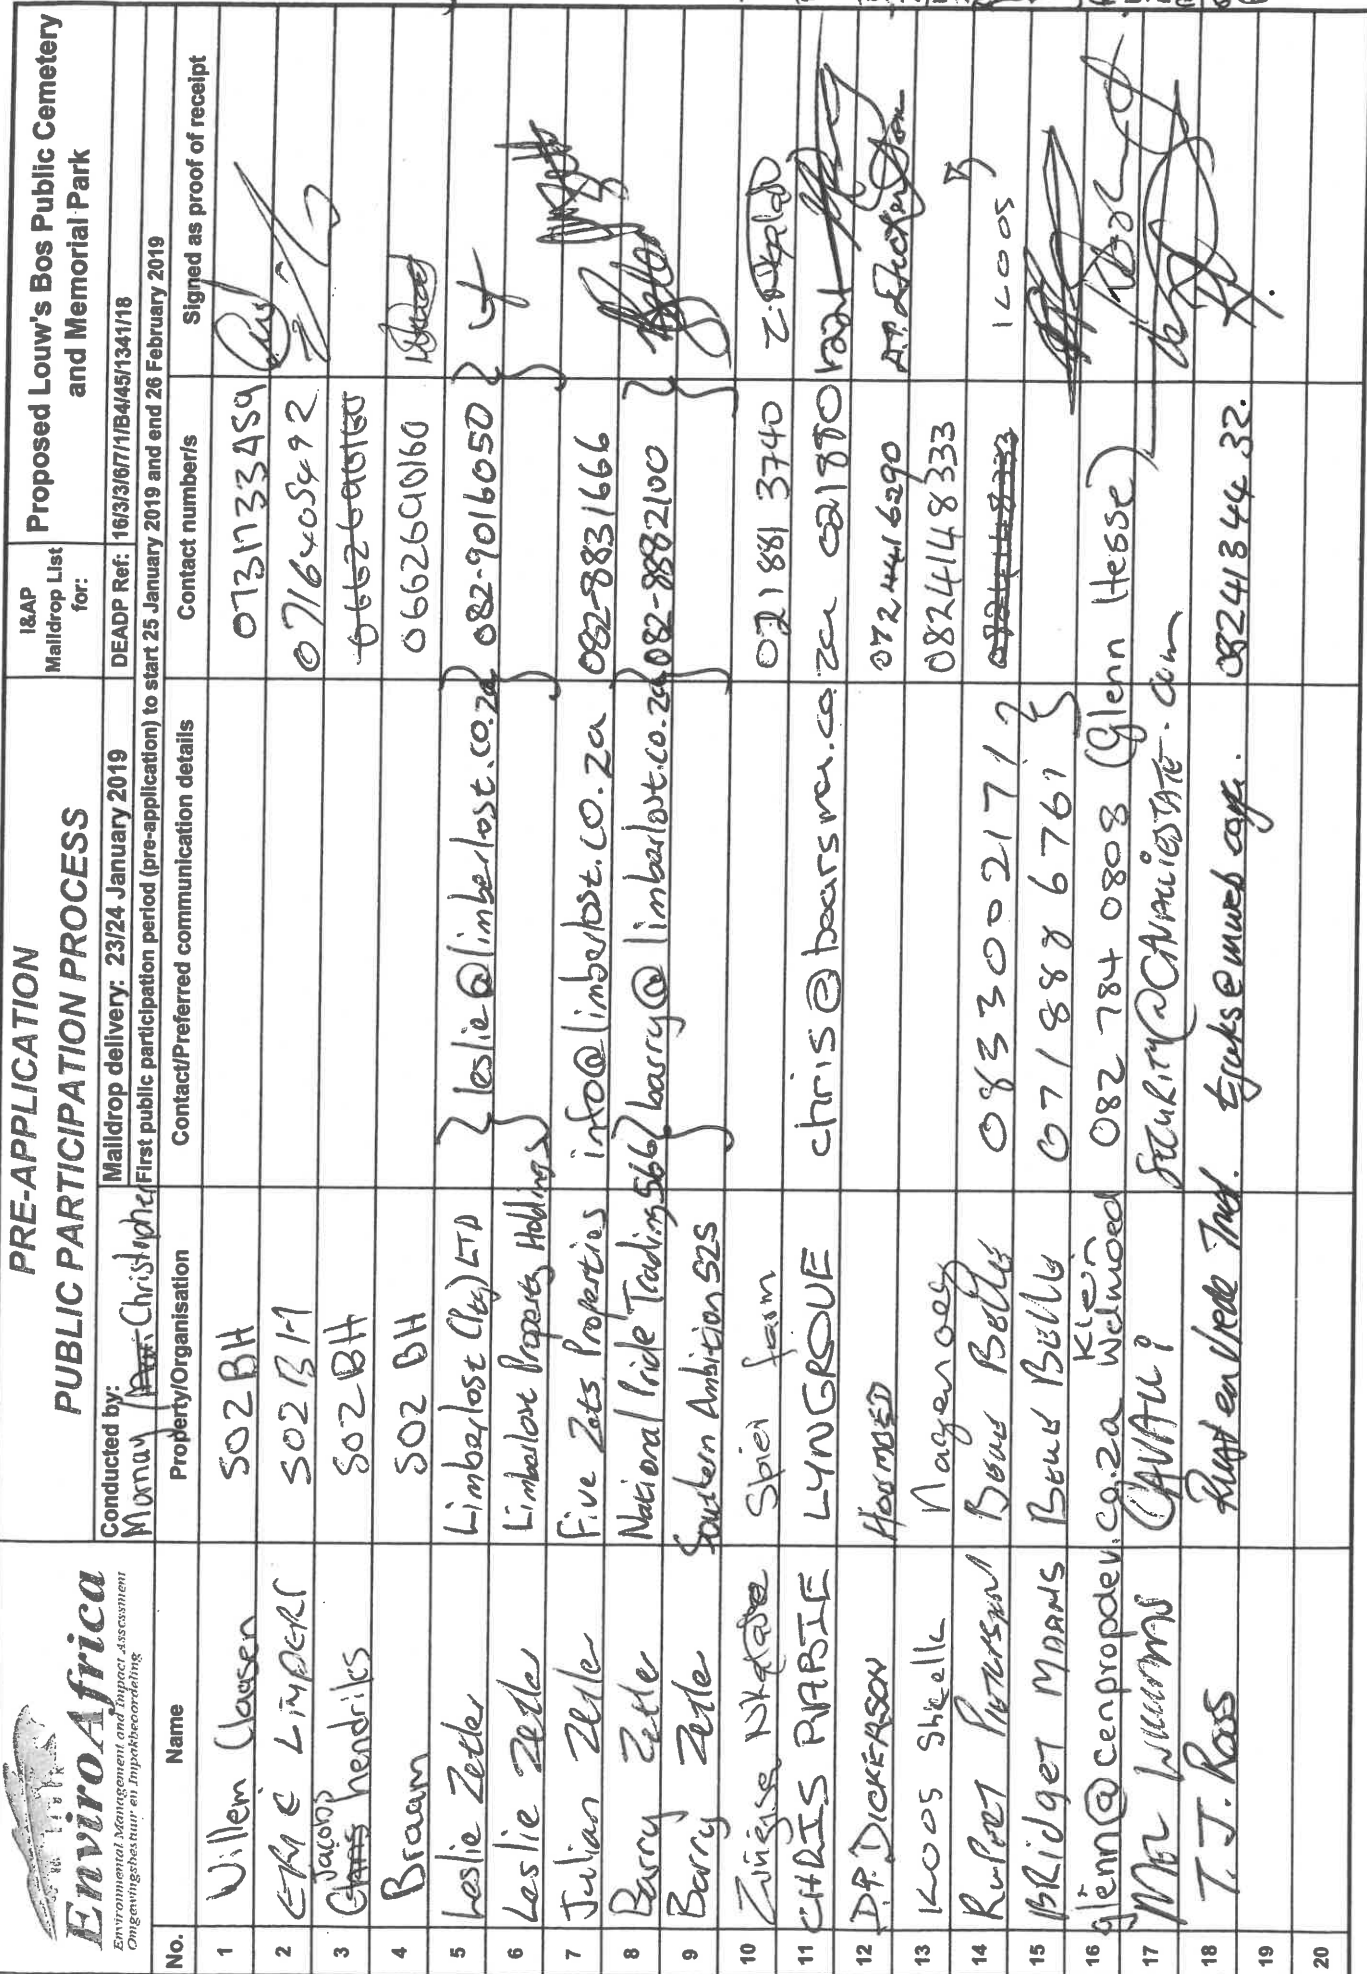 EnviroAfrica
Environmental Management and Impact Assessment
Omgewingsbestuur en Impakbeoordeling
PRE-APPLICATION
PUBLIC PARTICIPATION PROCESS
I&AP Maildrop List for:
Proposed Louw's Bos Public Cemetery and Memorial Park
Conducted by: Mornay Christopher
Maildrop delivery: 23/24 January 2019
DEADP Ref: 16/3/3/6/7/1/B4/45/1341/18
First public participation period (pre-application) to start 25 January 2019 and end 26 February 2019
No. Name Property/Organisation Contact/Preferred communication details Contact number/s Signed as proof of receipt
1 Willem Claasen SO2BH 0731733459
2 SO2BH 0716405492
3 Jacobs hendriks SO2BH 0662690160
4 Braam SO2 BH 0662690160
5 Leslie Zetler Limberlost (Pty) LTD } leslie@limberlost.co.za } 082-9016050 }
6 Leslie Zetler Limberlost Property Holdings
7 Julian Zetler Five Zets Properties info@limberlost.co.za 082-8831666
8 Barry Zetler National Pride Trading 566 } barry@limberlost.co.za } 082-8882100 }
9 Barry Zetler Southern Ambition 525
10 Spier farm 021 881 3740
11 CHRIS RABIE LYNGROVE chris@baarsma.co.za 021880
12 D.P. DICKERSON 0724416290
13 Koos Nagenoeg 0824148333 Koos
14 RUPERT PIETERSEN 0833002171 } 0824148333
15 BRidget MAANS 0718886761
16 glenn@cenpropdev.co.za Klein Welmoed 082 784 0808 (Glenn Hesse)
17 CAVALLI SECURITY@CAVALLIESTATE.com
18 T.J. Roos Rust en Vrede 0824134432.
19
20